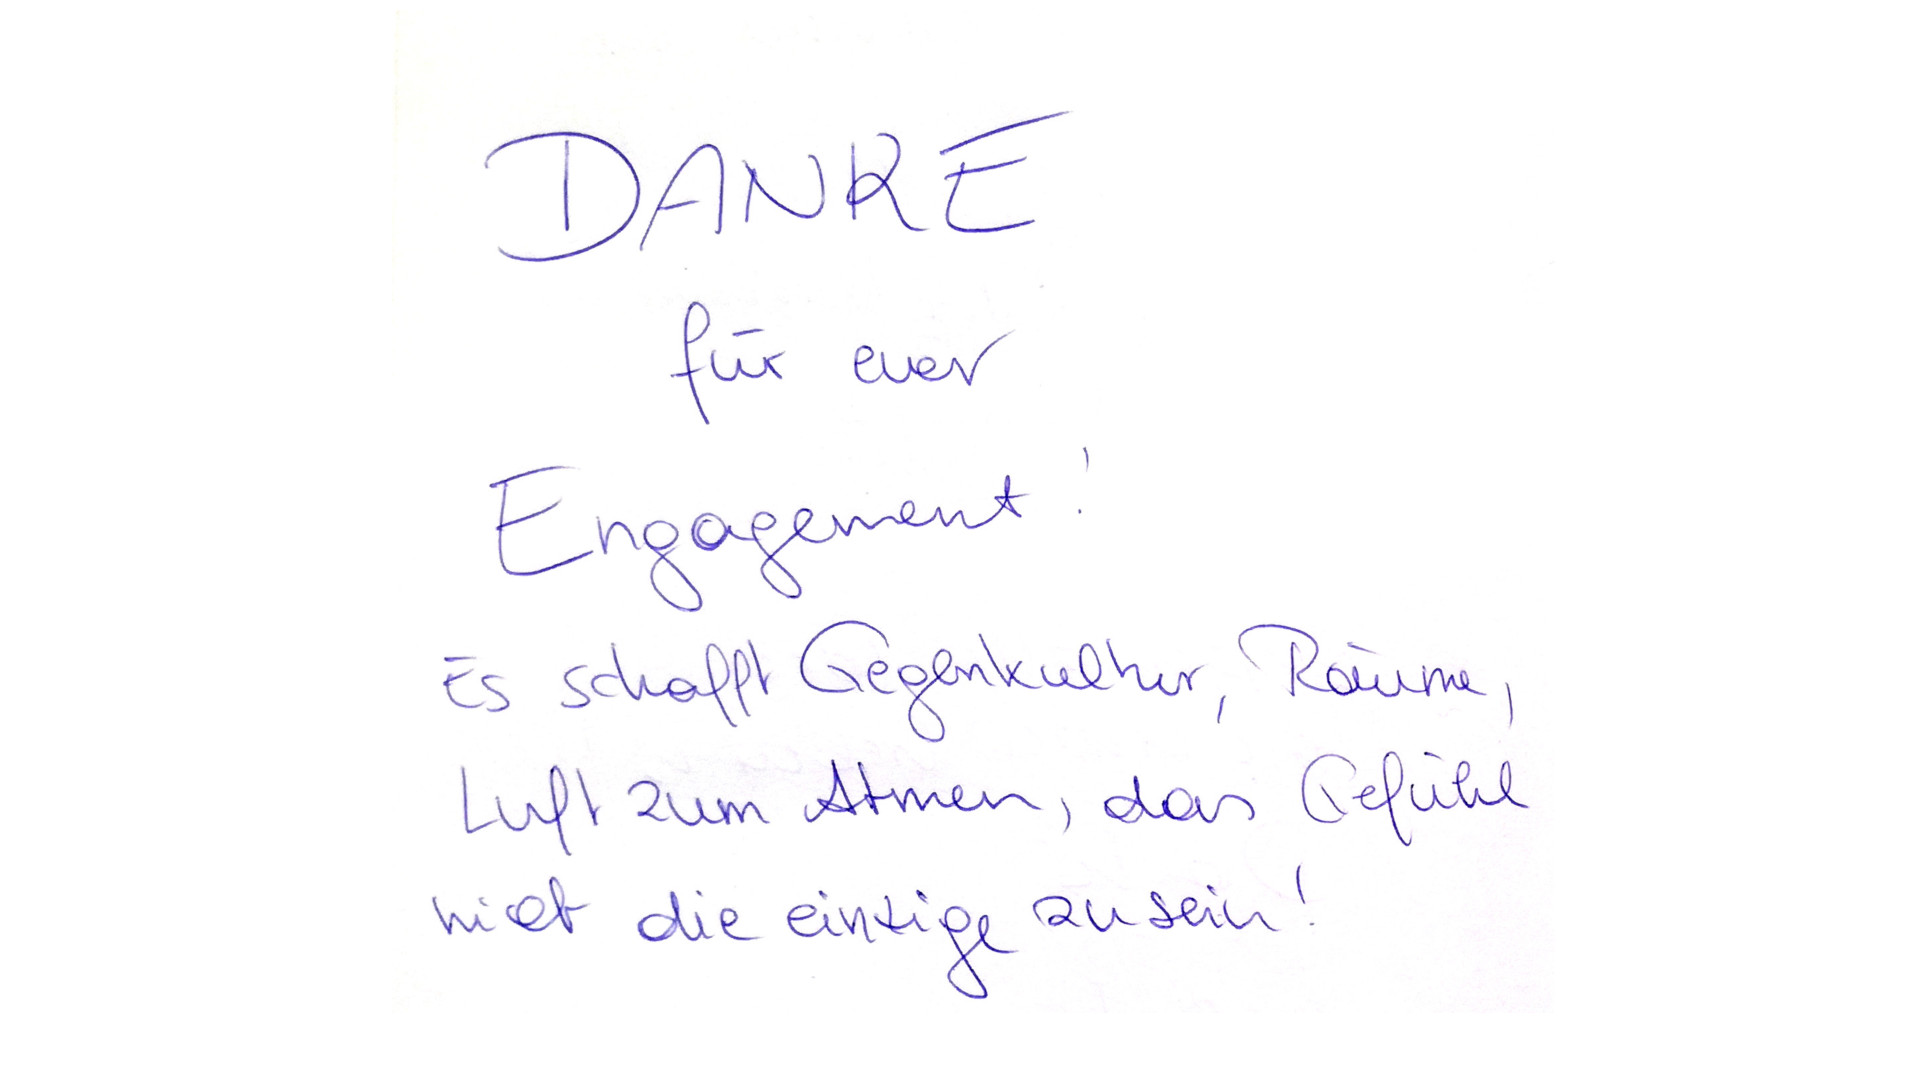 DANKE
für euer
Engagement!
Es schafft Gegenkultur, Räume,
Luft zum Atmen, das Gefühl
nicht die einzige zu sein!